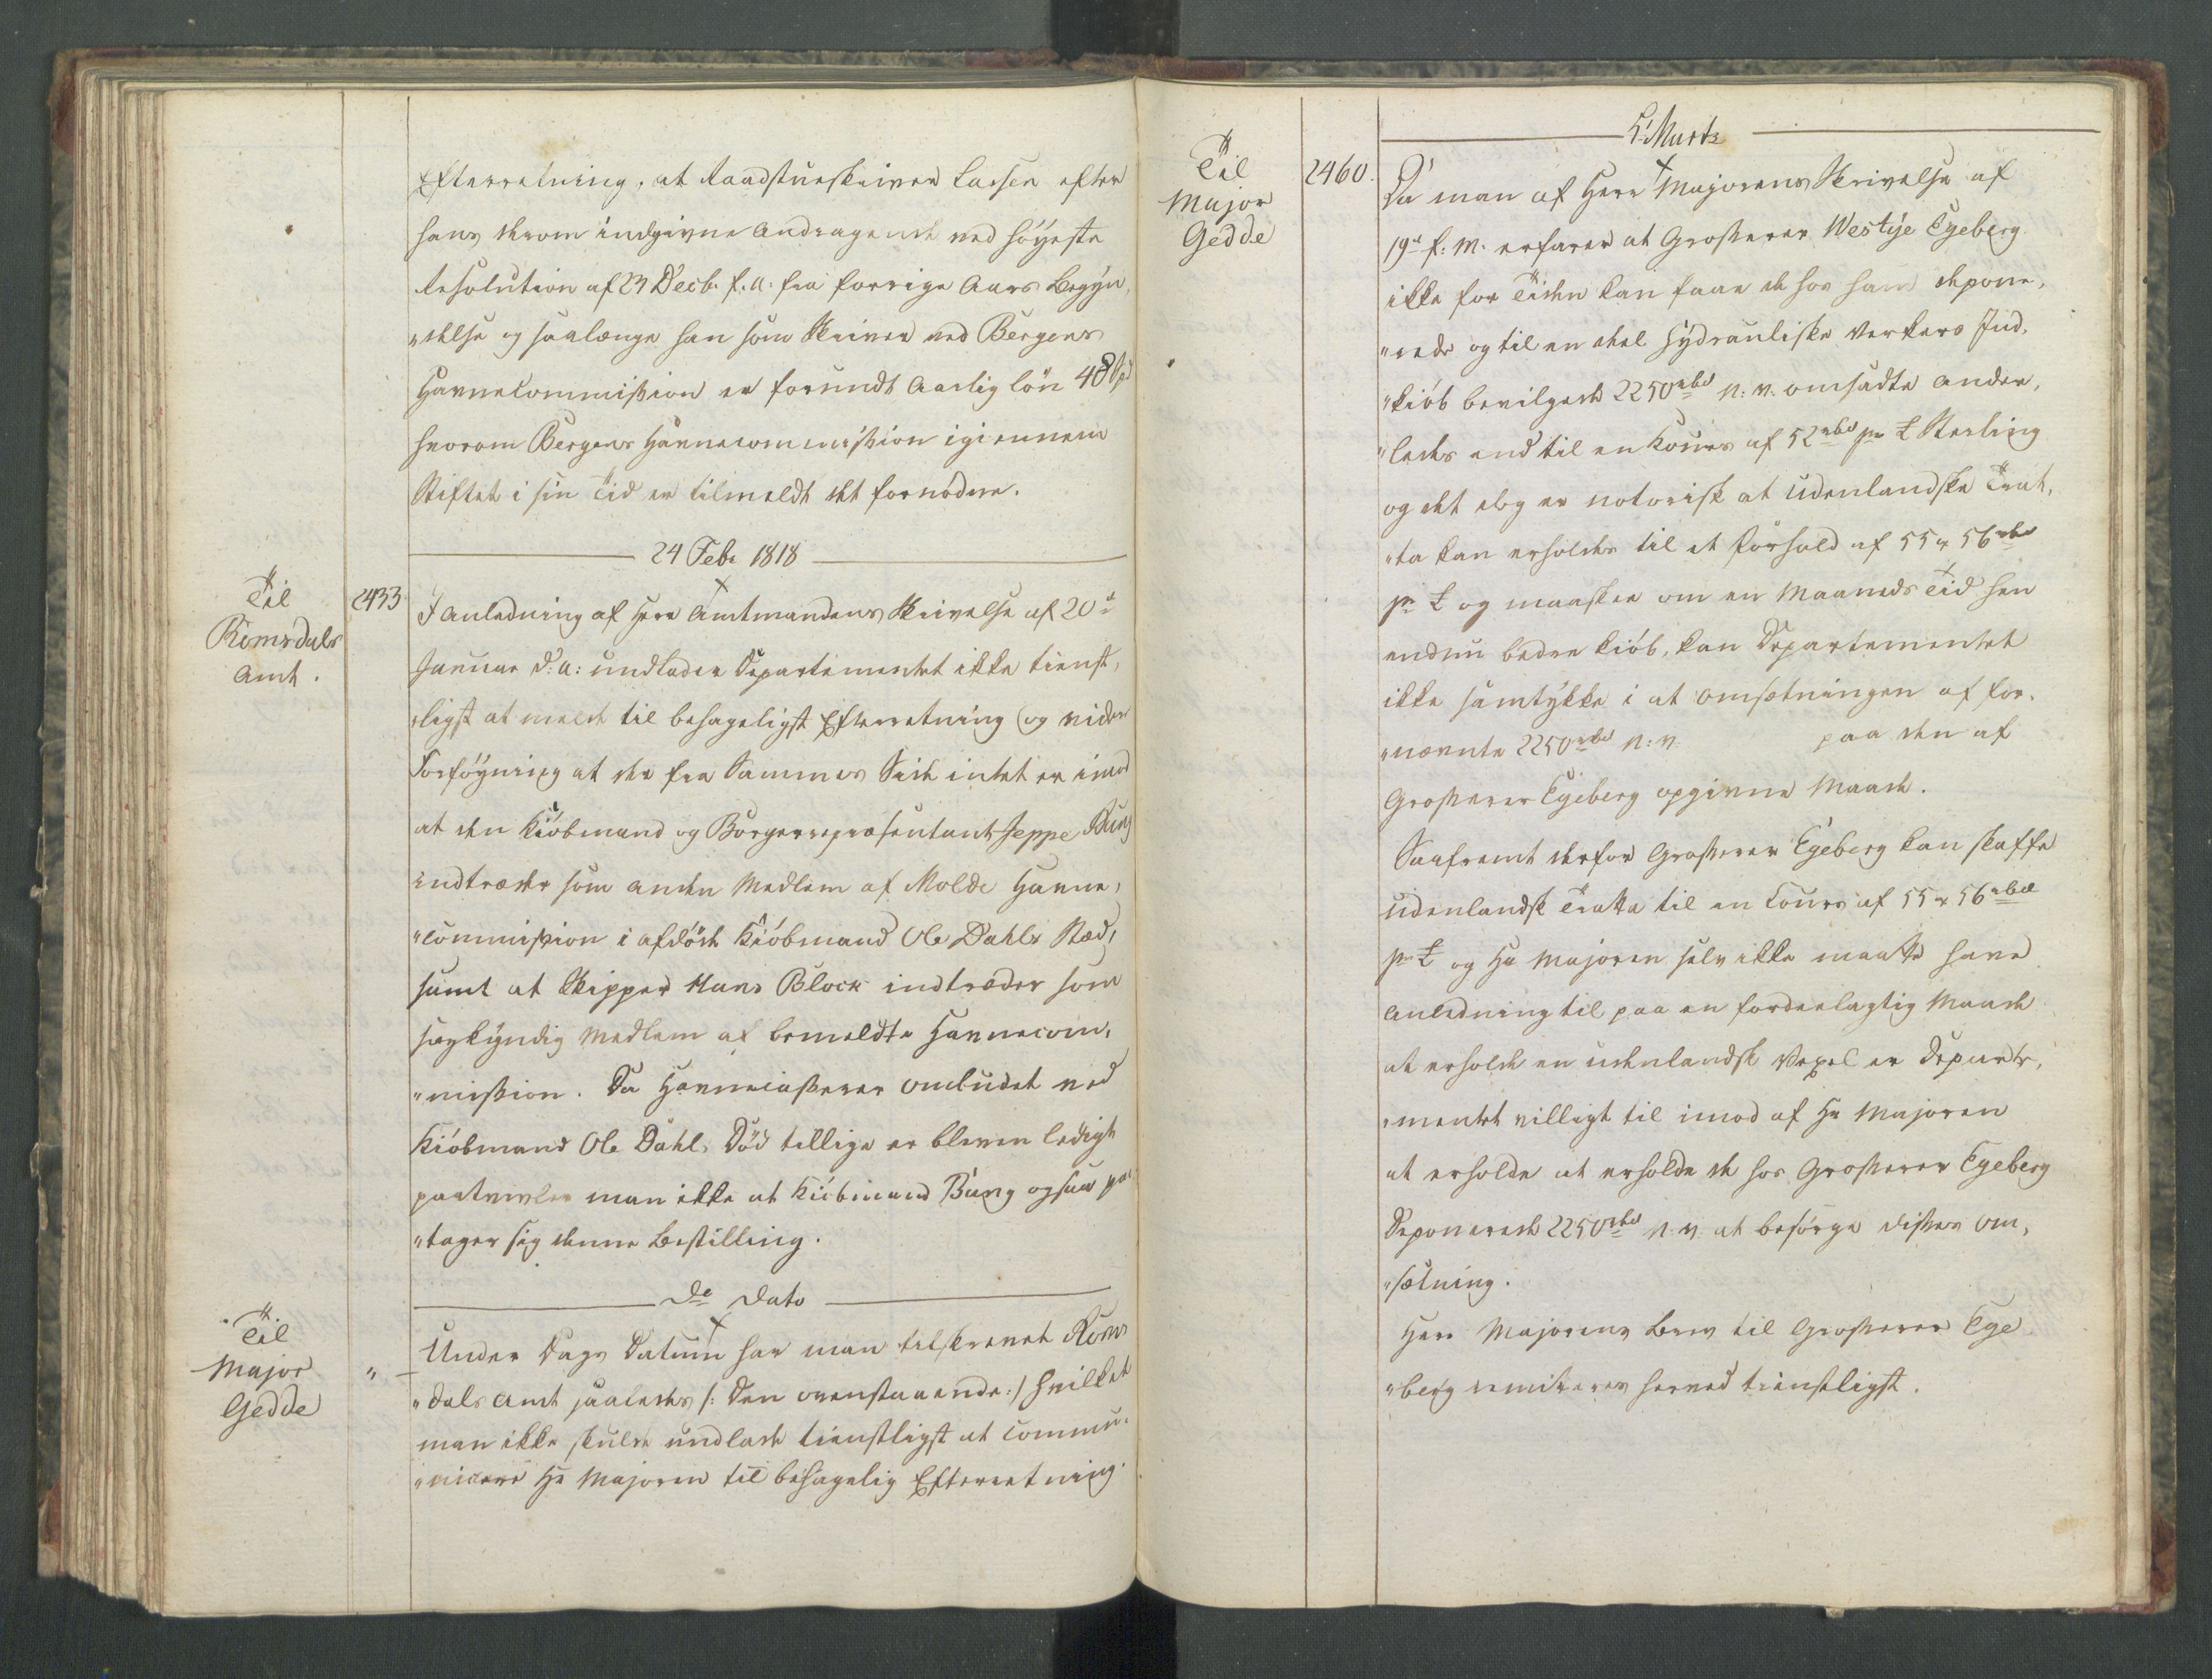 Efterretning, at Raadstueskriver Lassen efter
hans derom indgivne Andragende ved höyeste
Resolution af 23 Decb. f. A. fra forrige Aars Begyn,
"delse og saalænge han som Skriver ved Bergens
Havnecommission er forundt Aarlig lön 48 Spd
hvorom Bergens Havnecommission igiennem
Stiftet i sin Tid er tilmeldt det fornödne.
24 Febr 1818
Til
Romsdals
Amt.
2433
I Anledning af Herr Amtmandens Skrivelse af 20de
Januar d: A: undlader Departementet ikke tienst,
"ligst at melde til behageligst Efterretning og videre
Forföyning at der fra Sammes Side intet er imod
at den Kiöbmand og Borgerrepræsentant Jeppe Bung
indtræder som anden Medlem af Molde Havne,
"commission i afdöde Kiöbmand Ole Dahls Sted,
samt at Skipper Hans Block indtræder som
søekyndig Medlem af bemeldte Havnecom,
"mission. Da Havnecasserer Ombudet ved
Kiöbmand Ole Dahls Död tillige er bleven ledigt
paatvivler man ikke at Kiöbmand Bung ogsaa paa
"tager sig denne Bestilling.
De Dato
Til
Major
Gedde
"
Under Dags Datum har man tilskrevet Roms
"dals Amt saaledes /: Den ovenstaaende :/ hvilket
man ikke skulde undlade tienstligst at commu,
"nicere Hr Majoren til behagelig Efterretning.
5 Marts
Til
Major
Gedde
2460.
Da man af Herr Majorens Skrivelse af
19de f: M: erfarer at Grosserer Westye Egeberg
ikke for Tiden kan faae de hos ham depone,
"rede og til en deel Hydrauliske Verkers Ind,
"kiöb bevilgede 2250 rbd N: V. omsadte ander,
"ledes end til en Kours af 52 rbd pr £ Sterling
og det dog er notorisk at udenlandske Trat,
"ta kan erholdes til et Forhold af 55 a 56 rbd
pr £ og maaskee om en Maaneds Tid hen
endnu bedre Kiöb, kan Departementet
ikke samtykke i at Omsætningen af for,
"nævnte 2250 rbd N: V. paa den af
Grosserer Egeberg opgivne Maade.
Saafremt derfor Grosserer Egeberg kan skaffe
udenlandsk Tratta til en Cours af 55 a 56 rbd
pr £ og Hr Majoren selv ikke maatte have
Anledning til paa en fordeelagtig Maade
at erholde en udenlandsk Vexel er Departe,
"mentet villigt til imod af Hr Majoren
at erholde at erholde de hos Grosserer Egeberg
Deponerede 2250 rbd N. V. at besörge disses Om,
"sætning.
Herr Majorens Brev til Grosserer Ege
"berg remitteres herved tienstligst.